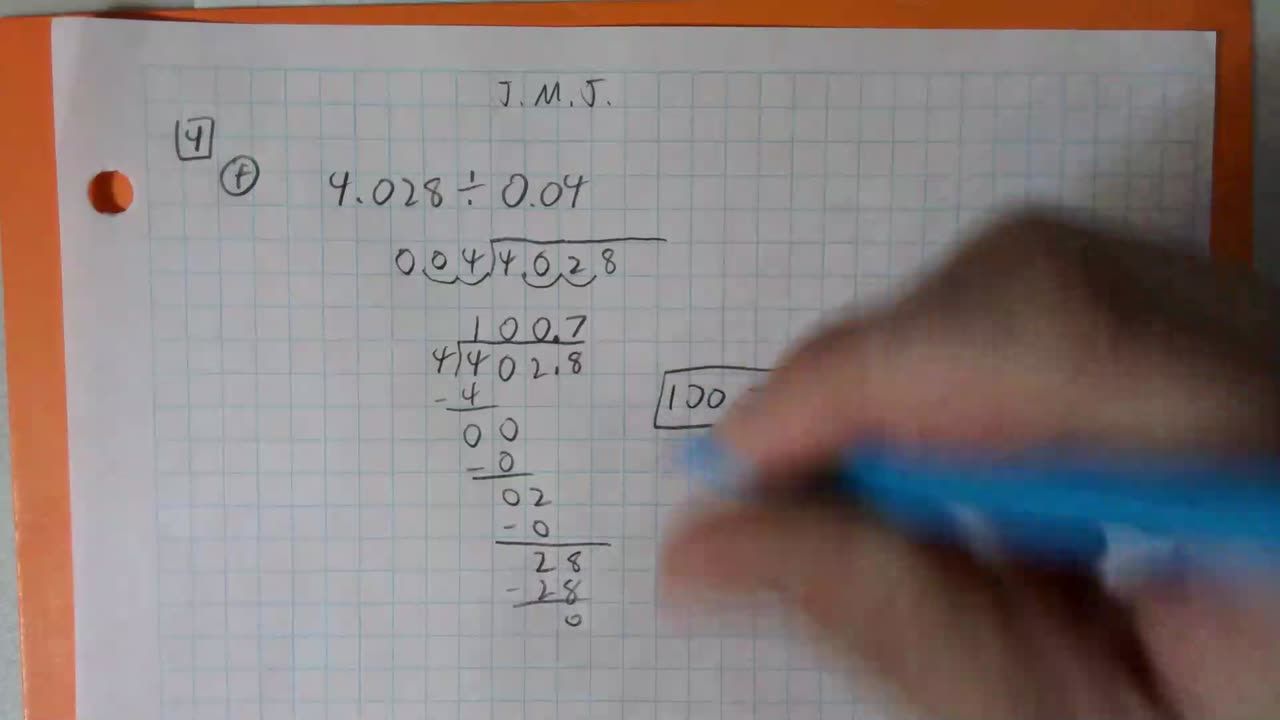 J.M.J.
4
f
4.028 ÷ 0.04
0 0 4)4 0 2 8
1 0 0.7
4)4 0 2.8
- 4
0 0
- 0
0 2
- 0
2 8
- 2 8
0
100